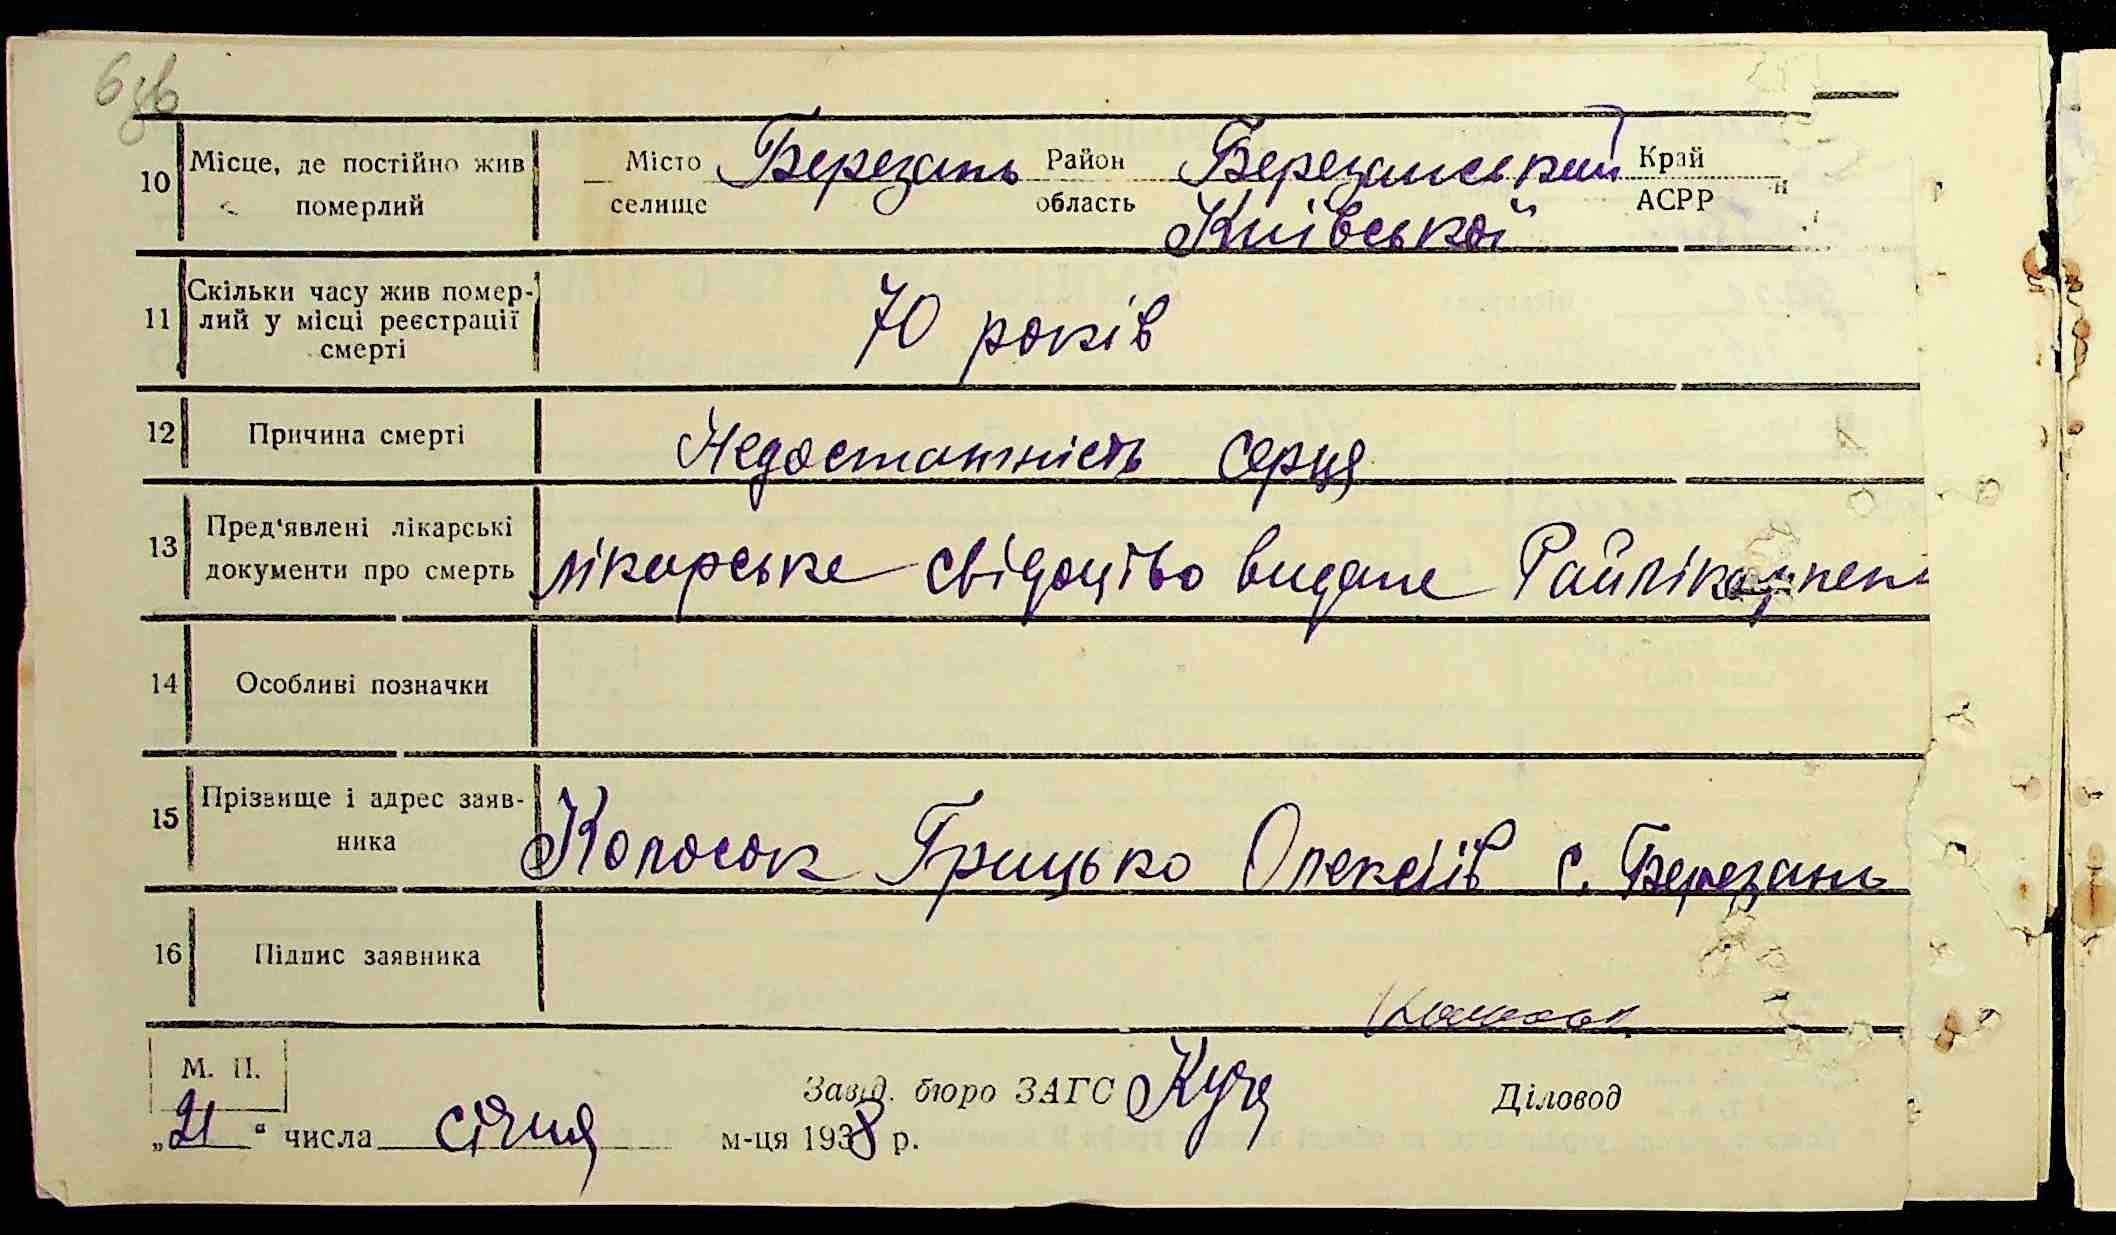 6зв
10 Місце, де постійно жив Місто Березань Район Березанський Край
померлий селище область Київської АСРР
11 Скільки часу жив помер-
лий у місці реєстрації 70 років
смерті
12 Причина смерті Недостатність серця
13 Пред'явлені лікарські
документи про смерть лікарське свідоцтво видане
14 Особливі позначки
15 Прізвище і адрес заяв-
ника Колосок Грицько Олексіїв с. Березань
16 Підпис заявника Колосок
М. П.
Завід. бюро ЗАГС Діловод
„21“ числа січня м-ця 1938 р.